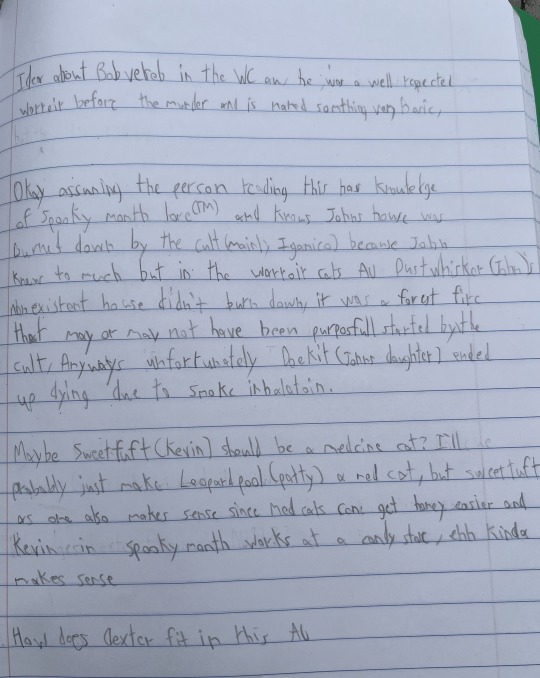 Idea about Bob velseb in the WC au, he was a well repected
worrair before the murder and is named somthing very basic,
Okay assuming the person reading this has knowledge
of spooky month lore(TM) and knows Johns house was
burnt down by the cult(mainly Iganico) because John
knew to much but in the worrair cats AU Dustwhisker(John)'s
non existent house didn't burn down, it was a forest fire
that may or may not have been purposfull started by the
cult, Anyways unfortunately Doekit(Johns daughter) ended
up dying due to smoke inhalatoin.
Maybe Sweettuft(Kevin) should be a medcine cat? I'll
probably just make Leopardpool(patty) a med cat, but sweettuft
as one also makes sense since med cats can get honey easier and
Kevin in spooky month works at a candy store, ehh kinda
makes sense
How does dexter fit in this AU